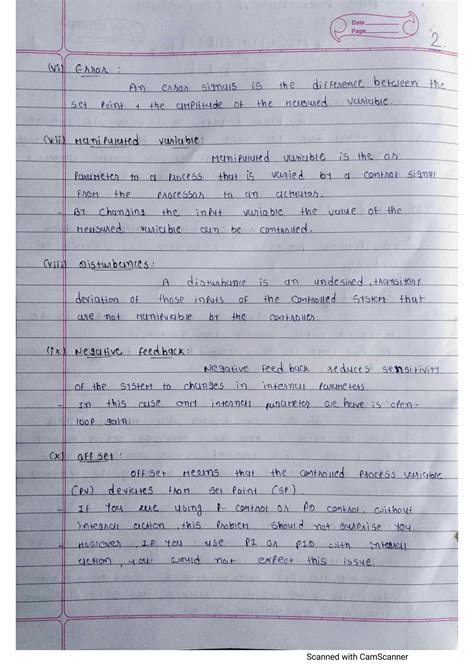 Date
Page
2.
(vi) Error :
An error signals is the difference between the
set point & the amplitude of the measured variable.
(vii) Manipulated variable:
Manipulated variable is the or
parameter to a process that is varied by a control signal
from the processor to an actuator.
- By changing the input variable the value of the
measured variable can be controlled.
(viii) Disturbances :
A disturbance is an undesired, transitory
deviation of those inputs of the controlled system that
are not manipulible by the controller.
(ix) Negative feedback:
Negative feed back reduces sensitivity
of the system to changes in internal parameters.
- In this case only internal parameter we have is open-
loop gain.
(x) off set :
off set means that the controlled process variable
(PV) deviates from set point (SP).
- If you are using P-control or PD control, without
integral action, this problem should not surprise you.
- However, If you use PI or PID with internal
action, you would not expect this issue.
Scanned with CamScanner